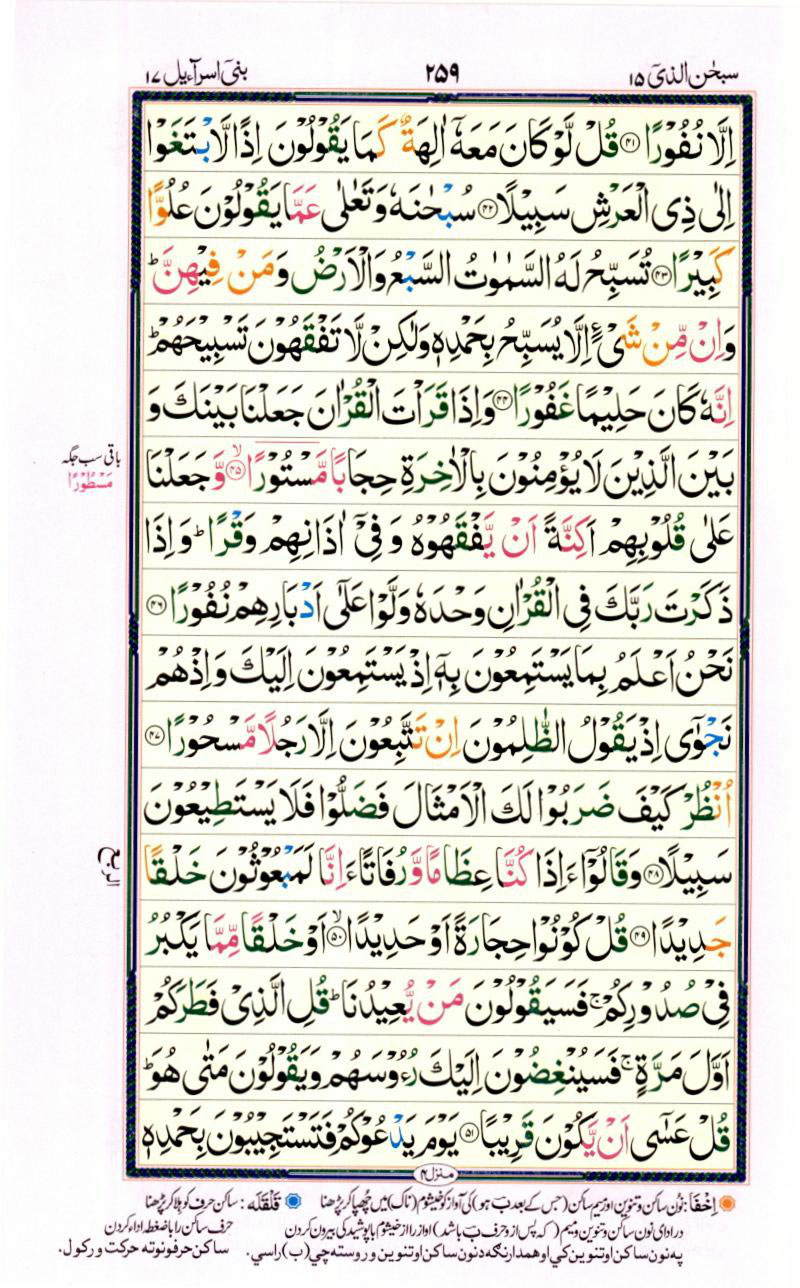 سبحٰن الذیٓ ۱۵
۲۵۹
بنیٓ اسرآءیل ۱۷
اِلَّا نُفُوْرًا ﴿۴۱﴾ قُلْ لَّوْ كَانَ مَعَهٗۤ اٰلِهَةٌ كَمَا يَقُوْلُوْنَ اِذًا لَّابْتَغَوْا
اِلٰى ذِى الْعَرْشِ سَبِيْلًا ﴿۴۲﴾ سُبْحٰنَهٗ وَتَعٰلٰى عَمَّا يَقُوْلُوْنَ عُلُوًّا
كَبِيْرًا ﴿۴۳﴾ تُسَبِّحُ لَهُ السَّمٰوٰتُ السَّبْعُ وَالْاَرْضُ وَمَنْ فِيْهِنَّ ؕ
وَاِنْ مِّنْ شَىْءٍ اِلَّا يُسَبِّحُ بِحَمْدِهٖ وَلٰكِنْ لَّا تَفْقَهُوْنَ تَسْبِيْحَهُمْ ؕ
اِنَّهٗ كَانَ حَلِيْمًا غَفُوْرًا ﴿۴۴﴾ وَاِذَا قَرَاْتَ الْقُرْاٰنَ جَعَلْنَا بَيْنَكَ وَ
بَيْنَ الَّذِيْنَ لَا يُؤْمِنُوْنَ بِالْاٰخِرَةِ حِجَابًا مَّسْتُوْرًا ﴿۴۵﴾ۙ وَّجَعَلْنَا
باقی سب جگہ
مَسْطُوْرًا
عَلٰى قُلُوْبِهِمْ اَكِنَّةً اَنْ يَّفْقَهُوْهُ وَفِىْۤ اٰذَانِهِمْ وَقْرًا ؕ وَاِذَا
ذَكَرْتَ رَبَّكَ فِى الْقُرْاٰنِ وَحْدَهٗ وَلَّوْا عَلٰٓى اَدْبَارِهِمْ نُفُوْرًا ﴿۴۶﴾
نَحْنُ اَعْلَمُ بِمَا يَسْتَمِعُوْنَ بِهٖۤ اِذْ يَسْتَمِعُوْنَ اِلَيْكَ وَاِذْ هُمْ
نَجْوٰٓى اِذْ يَقُوْلُ الظّٰلِمُوْنَ اِنْ تَتَّبِعُوْنَ اِلَّا رَجُلًا مَّسْحُوْرًا ﴿۴۷﴾
اُنْظُرْ كَيْفَ ضَرَبُوْا لَكَ الْاَمْثَالَ فَضَلُّوْا فَلَا يَسْتَطِيْعُوْنَ
سَبِيْلًا ﴿۴۸﴾ وَقَالُوْۤا ءَاِذَا كُنَّا عِظَامًا وَّرُفَاتًا ءَاِنَّا لَمَبْعُوْثُوْنَ خَلْقًا
الربع
جَدِيْدًا ﴿۴۹﴾ قُلْ كُوْنُوْا حِجَارَةً اَوْ حَدِيْدًا ﴿۵۰﴾ۙ اَوْ خَلْقًا مِّمَّا يَكْبُرُ
فِىْ صُدُوْرِكُمْ ۚ فَسَيَقُوْلُوْنَ مَنْ يُّعِيْدُنَا ؕ قُلِ الَّذِىْ فَطَرَكُمْ
اَوَّلَ مَرَّةٍ ۚ فَسَيُنْغِضُوْنَ اِلَيْكَ رُءُوْسَهُمْ وَيَقُوْلُوْنَ مَتٰى هُوَ ؕ
قُلْ عَسٰٓى اَنْ يَّكُوْنَ قَرِيْبًا ﴿۵۱﴾ يَوْمَ يَدْعُوْكُمْ فَتَسْتَجِيْبُوْنَ بِحَمْدِهٖ
منزل ۴
اِخْفَا: نُون ساکن و تنوین اور میم ساکن (جس کے بعد بَ ہو) کی آواز کو خیشوم (ناک) میں چھپا کر پڑھنا قَلْقَلَه: ساکن حرف کو ہلا کر پڑھنا
در ادای نون ساکن و تنوین و میم (که پس از و حرف بَ باشد) اواز را از خیشوم با پوشیدگی بیرون کردن حرف ساکن را با ضغطه ادا کردن
په نون ساکن او تنوین کي او همدارنګه د نون ساکن او تنوین و روسته چي (ب) راسي. ساکن حرفو نو ته حرکت ورکول.